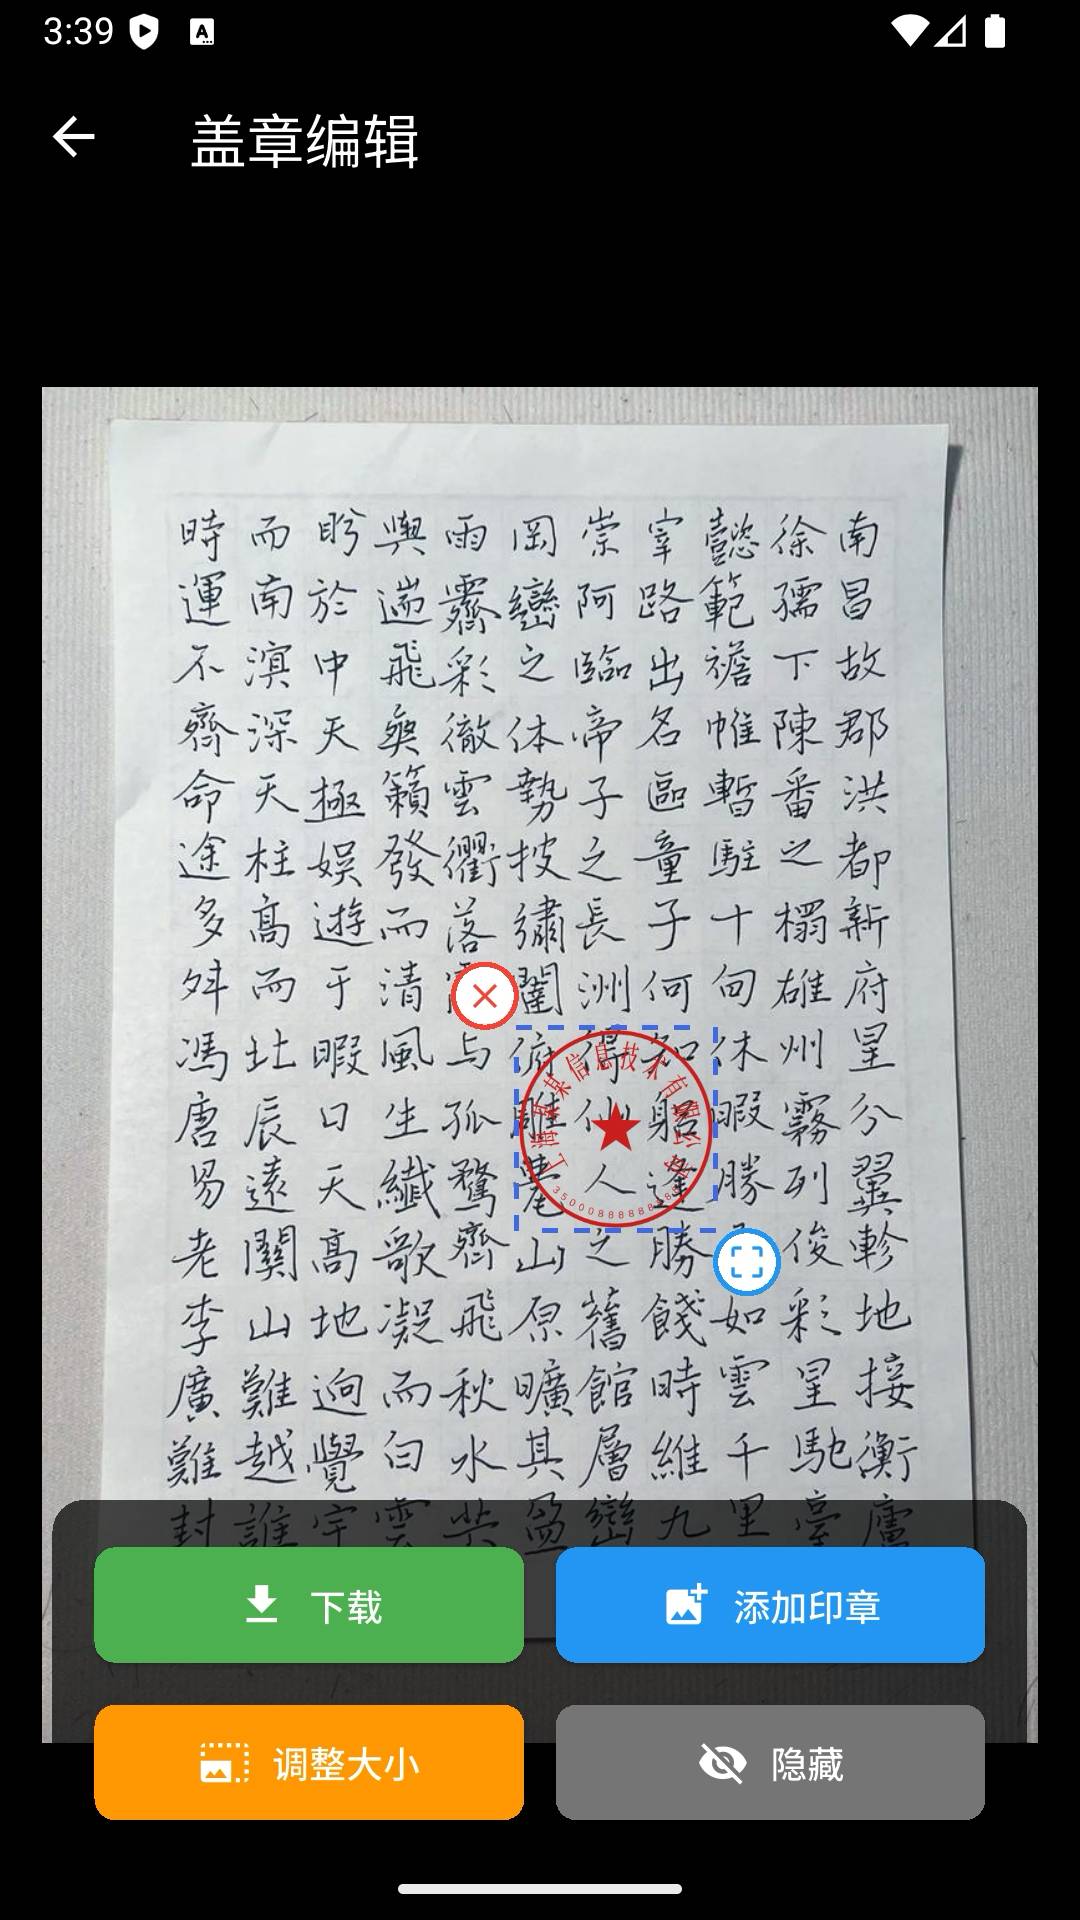 3:39
盖章编辑
南昌故郡洪都新府星分翼軫地接衡廬
徐孺下陳番之榻雄州霧列俊彩星馳臺
懿範襜帷暫駐十旬休暇勝如雲千里
宰路出名區童子何知躬逢勝餞時維九
崇阿臨帝子之長洲得仙人之舊館層巒
岡巒之体勢披繡闥俯雕甍山原曠其盈
雨霽彩徹雲衢落与孤鶩齊飛秋水共
興遄飛爽籟發而清風生纖歌凝而白雲
盼於中天極娛遊于暇日天高地迥覺宇
而南溟深天柱高而北辰遠關山難越誰
時運不齊命途多舛馮唐易老李廣難封
上海某某信息技术有限公司
下载
添加印章
调整大小
隐藏